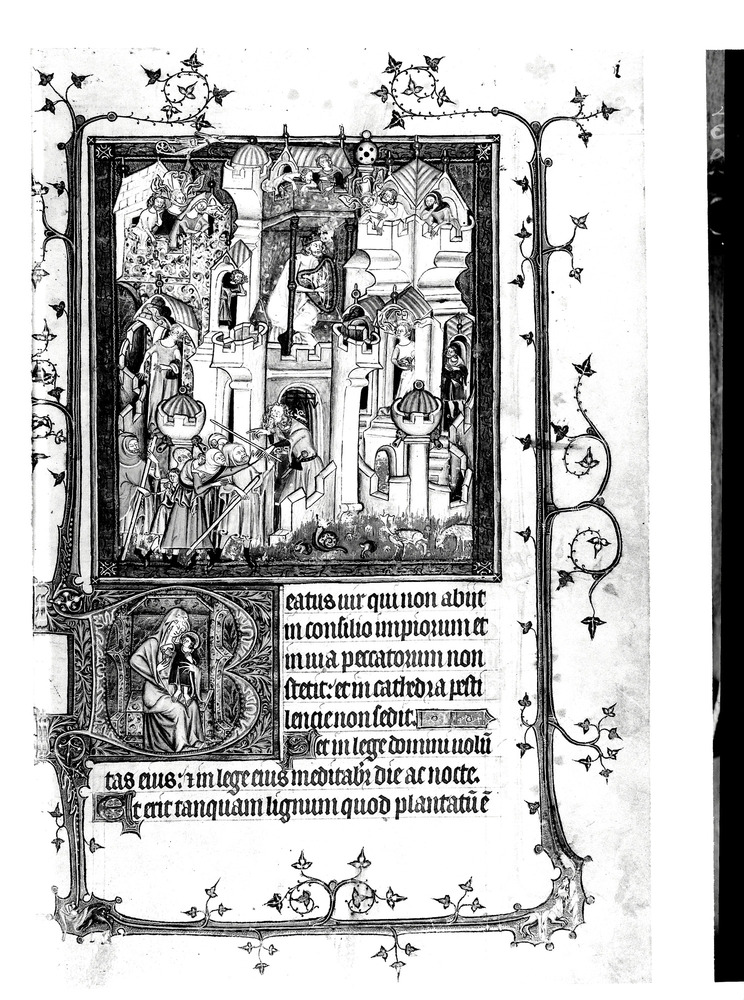 i
Beatus uir qui non abijt
in consilio impiorum et
in uia peccatorum non
stetit: et in cathedra pesti
lencie non sedit.
Set in lege domini uolū
tas eius: ⁊ in lege eius meditabr̄ die ac nocte.
Et erit tanquam lignum quod plantatū ē